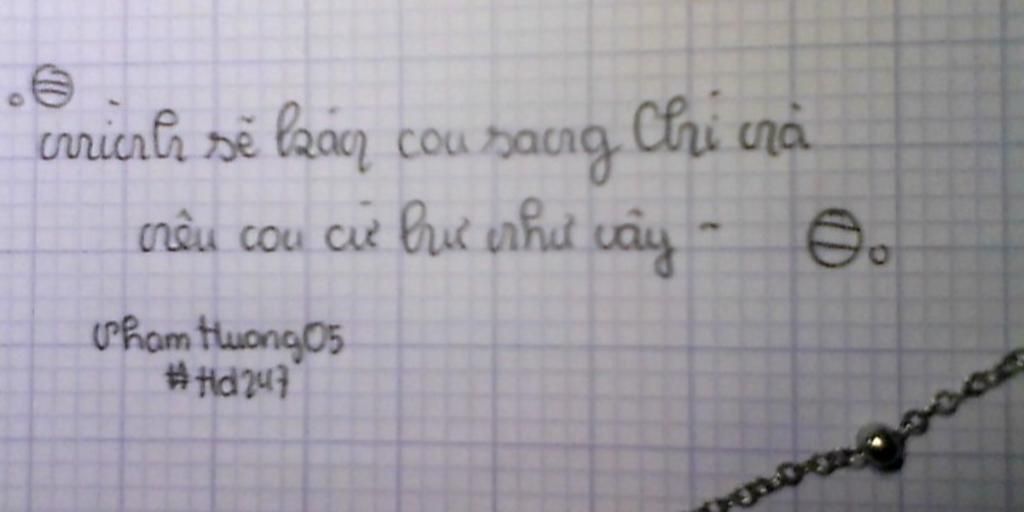 mình sẽ bán con sang Chi na
nếu con cứ hư như vậy -
PhamHuong05
#Hd247